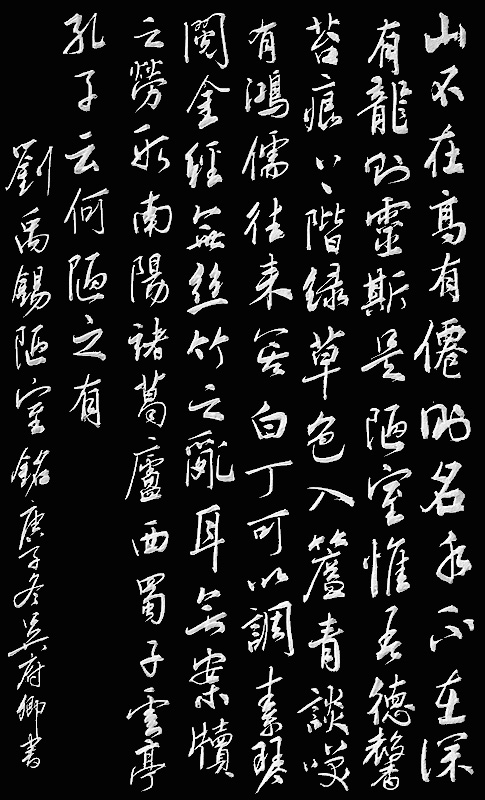 山不在高有僊則名水不在深
有龍則靈斯是陋室惟吾德馨
苔痕上階緑草色入簾青談咲
有鴻儒往来無白丁可以調素琴
閲金經無絲竹之亂耳無案牘
之勞形南陽諸葛廬西蜀子雲亭
孔子云何陋之有
劉禹錫陋室銘庚子冬吳府卿書